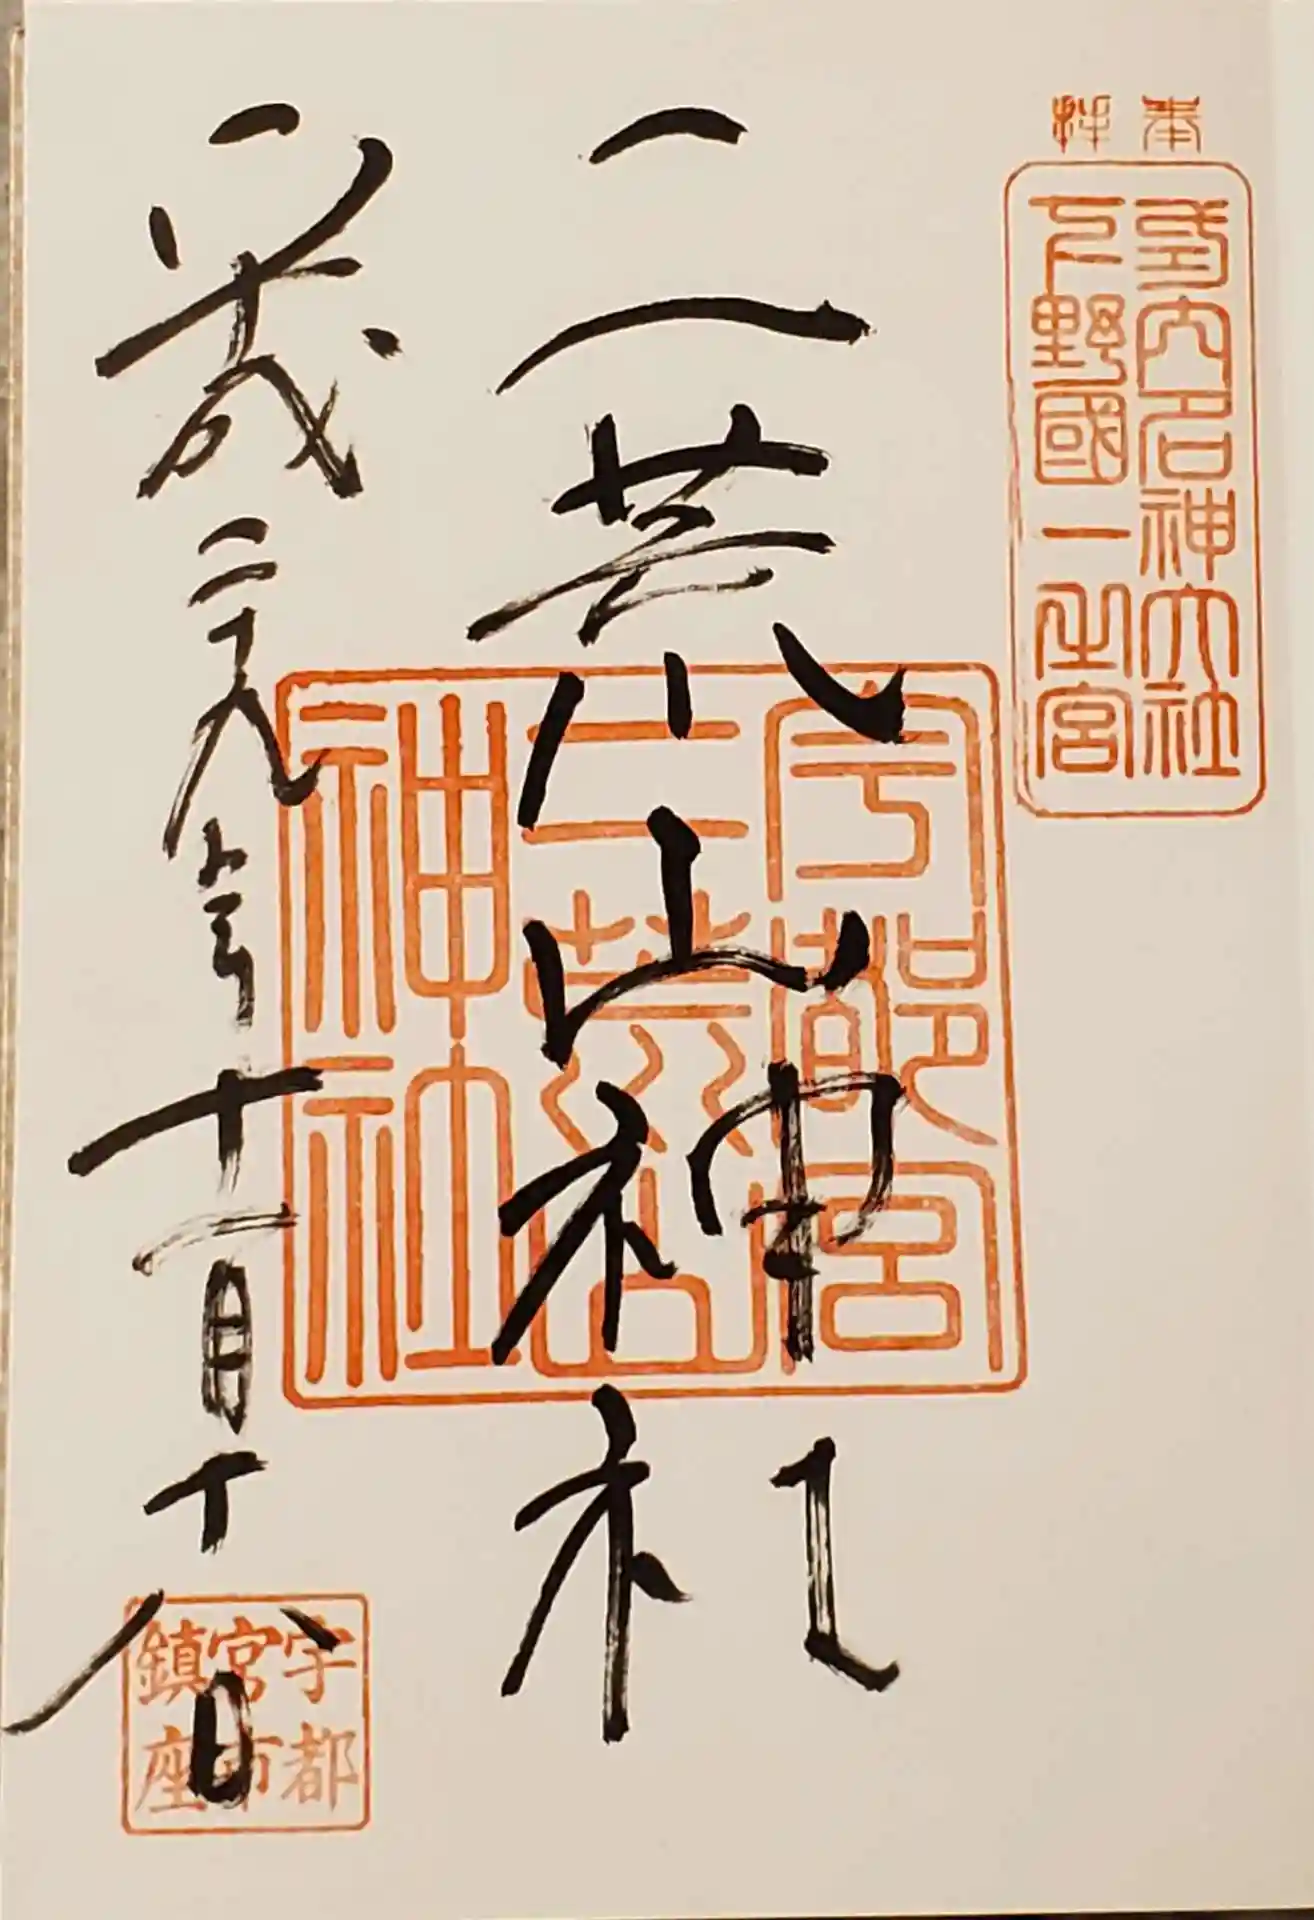 奉拝
式内名神大社
下野國一之宮
二荒山神社
宇都宮
二荒山
神社
平成二十九年十一月十八日
宇都
宮市
鎮座